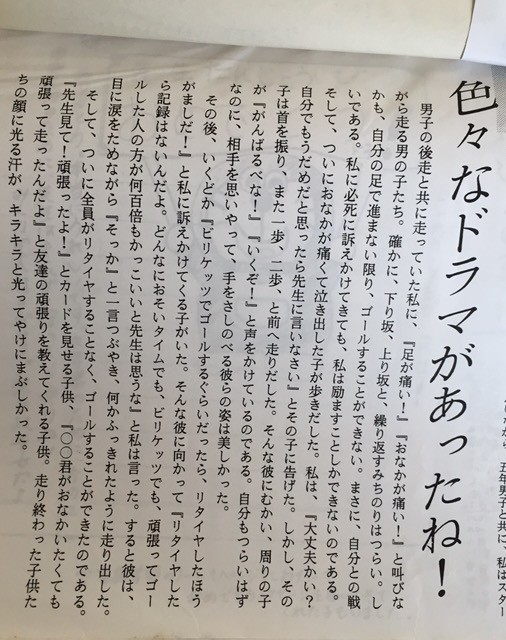 たから、五年男子と共に、私はスター
色々なドラマがあったね！
男子の後走と共に走っていた私に、『足が痛い！』『おなかが痛い！』と叫びな
がら走る男の子たち。確かに、下り坂、上り坂と、繰り返すみちのりはつらい。し
かも、自分の足で進まない限り、ゴールすることができない。まさに、自分との戦
いである。私に必死に訴えかけてきても、私は励ますことしかできないのである。
そして、ついにおなかが痛くて泣き出した子が歩きだした。私は、『大丈夫かい？
自分でもうだめだと思ったら先生に言いなさい』とその子に告げた。しかし、その
子は首を振り、また一歩、二歩、と前へ走りだした。そんな彼にむかい、周りの子
が『がんばるべな！』『いくぞ！』と声をかけているのである。自分もつらいはず
なのに、相手を思いやって、手をさしのべる彼らの姿は美しかった。
その後、いくどか『ビリケッツでゴールするぐらいだったら、リタイヤしたほう
がましだ！』と私に訴えかけてくる子がいた。そんな彼に向かって『リタイヤした
ら記録はないんだよ。どんなにおそいタイムでも、ビリケッツでも、頑張ってゴー
ルした人の方が何百倍もかっこいいと先生は思うな』と私は言った。すると彼は、
目に涙をためながら『そっか』と一言つぶやき、何かふっきれたように走り出した。
そして、ついに全員がリタイヤすることなく、ゴールすることができたのである。
『先生見て！頑張ったよ！』とカードを見せる子供、『〇〇君がおなかいたくても
頑張って走ったんだよ』と友達の頑張りを教えてくれる子供。走り終わった子供た
ちの顔に光る汗が、キラキラと光ってやけにまぶしかった。